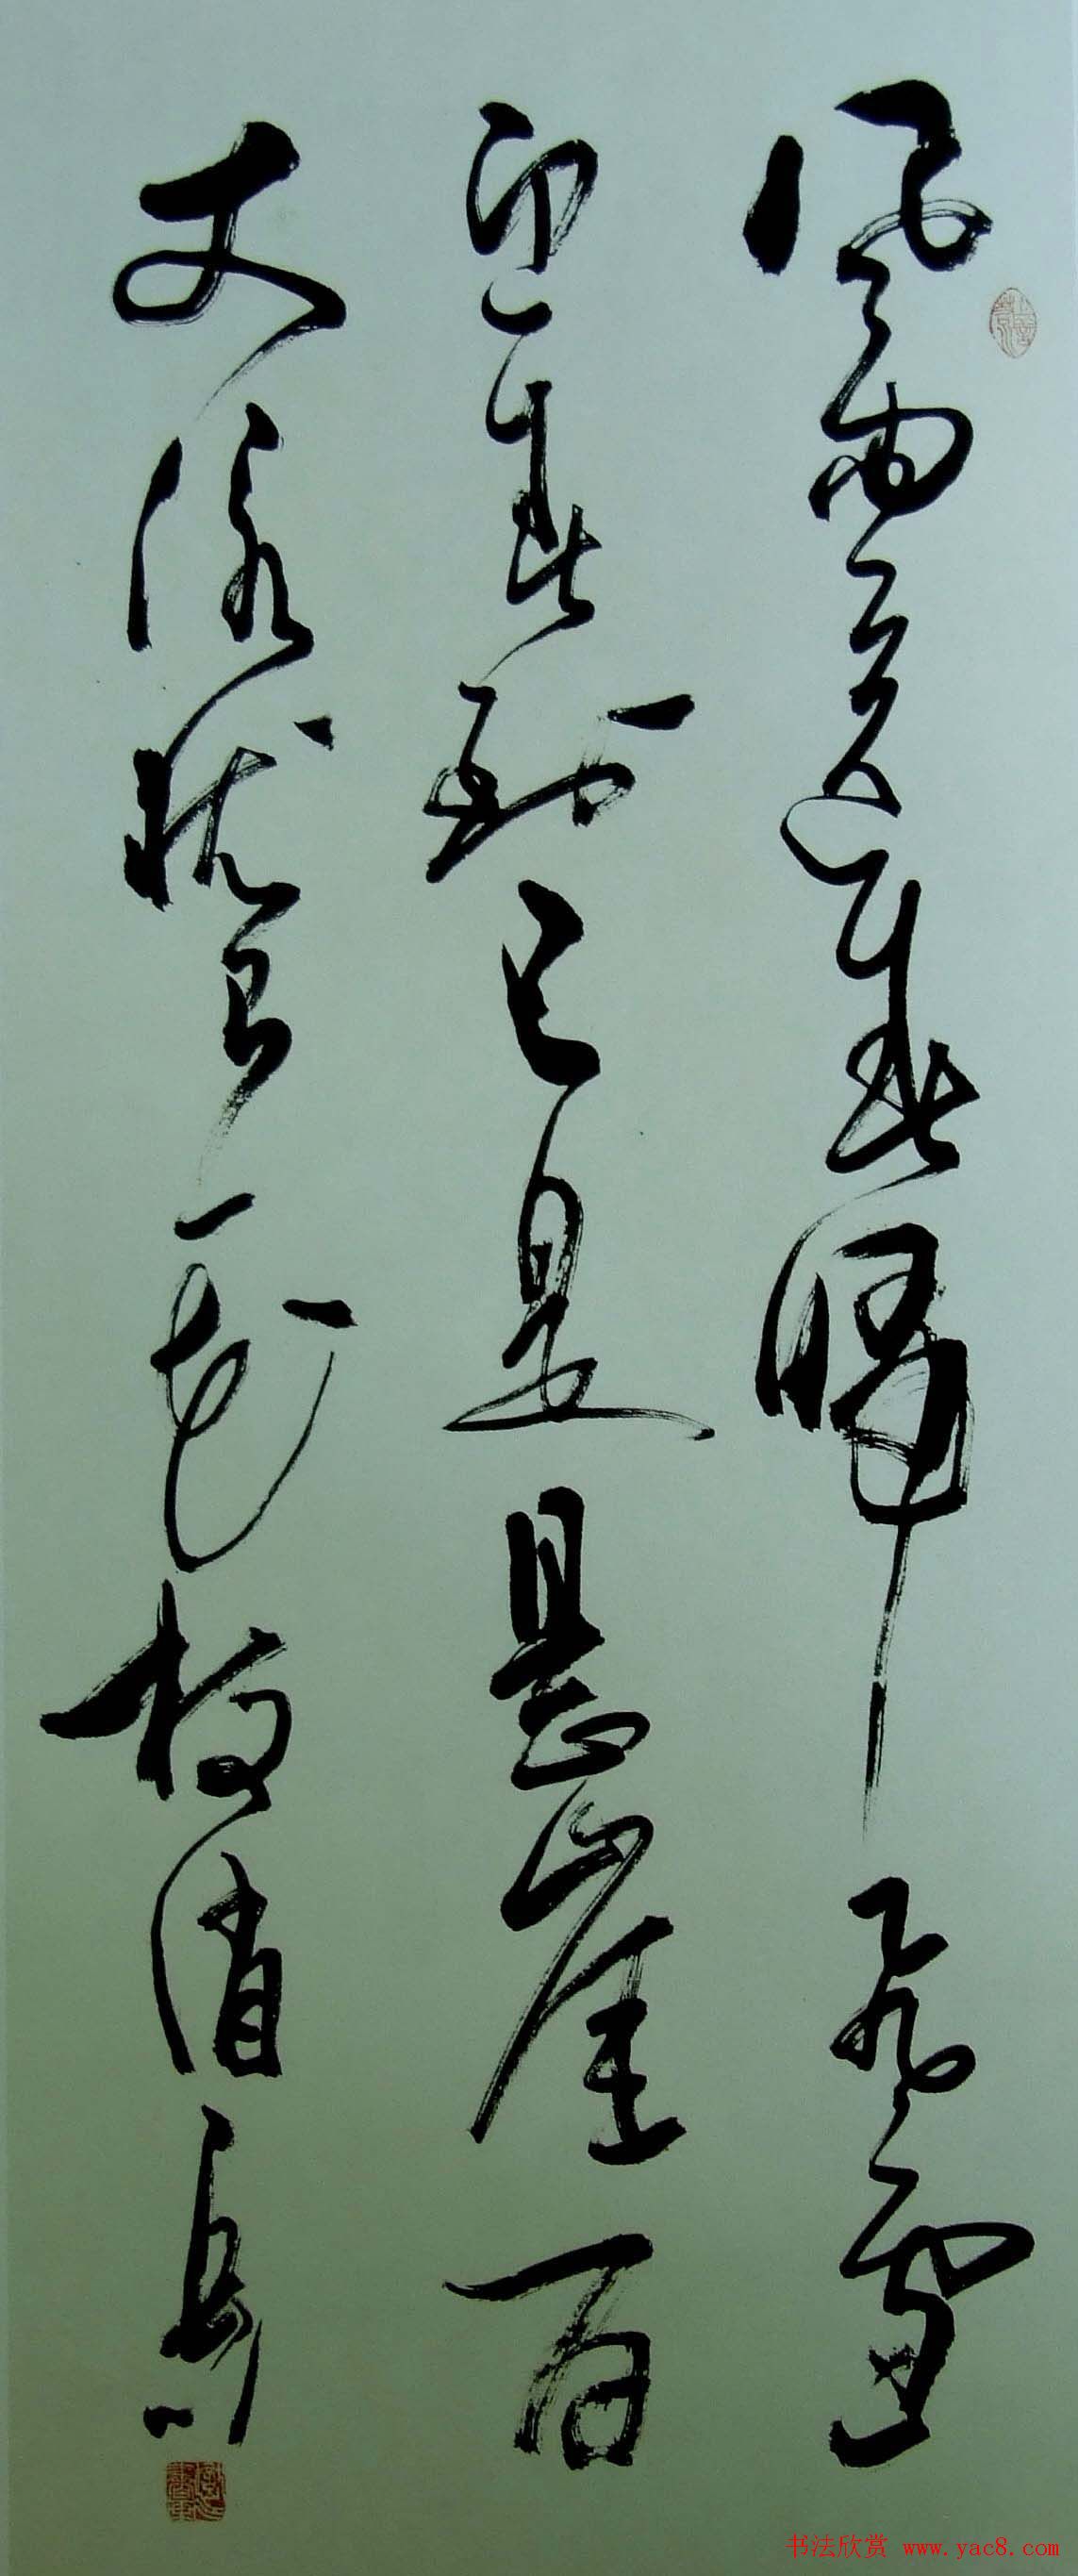 风雨送春归飞雪
迎春到已是悬崖百
丈冰犹有花枝俏
书法欣赏 www.yac8.com